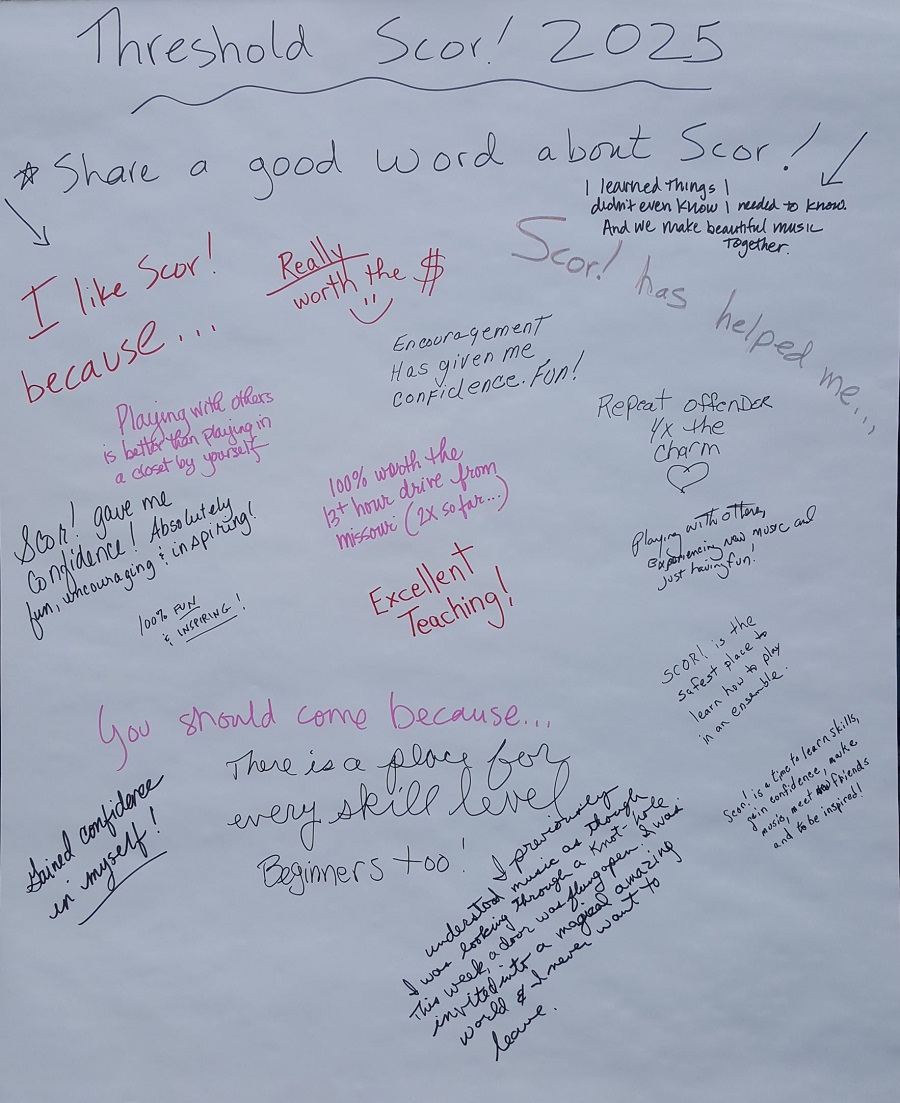 Threshold Scor! 2025
Share a good word about Scor!
I learned things I
didn't even know I needed to know.
And we make beautiful music
together.
I like Scor!
because...
Really
worth the $
Scor! has helped me...
Encouragement
Has given me
confidence. Fun!
Playing with others
is better than playing in
a closet by yourself
Repeat offender
4x the
charm
100% worth the
13+ hour drive from
Missouri (2x so far...)
Scor! gave me
confidence! Absolutely
fun, uncouraging & inspiring!
Playing with others,
experiencing new music and
just having fun!
100% FUN
& INSPIRING!
Excellent
Teaching!
SCOR! is the
safest place to
learn how to play
in an ensemble.
You should come because...
There is a place for
every skill level
Beginners too!
Gained confidence
in myself!
Scor! is a time to learn skills,
gain confidence, make
music, meet friends
and to be inspired!
I previously
understood music as though
I was looking through a knot-hole
This week, a door was flung open. I was
invited into a magical amazing
world & I never want to
leave.